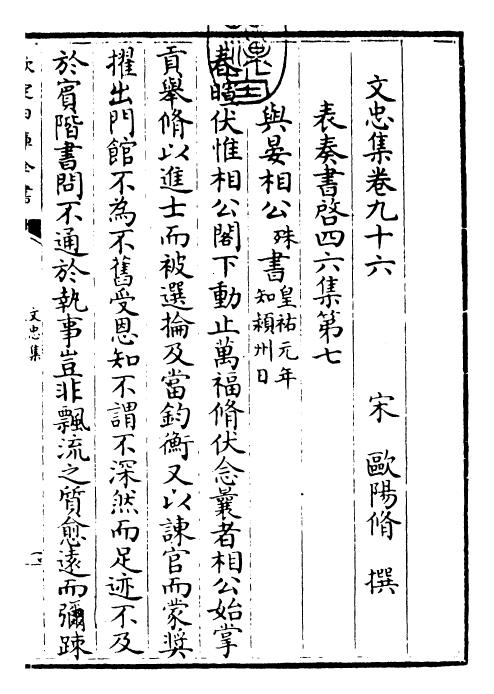 文忠集卷九十六
宋 歐陽脩 撰
表奏書啓四六集第七
與晏相公殊書皇祐元年知潁州日
春暄伏惟相公閣下動止萬福脩伏念曩者相公始掌
貢舉脩以進士而被選掄及當鈞衡又以諫官而蒙奬
擢出門館不為不舊受恩知不謂不深然而足迹不及
於賔階書問不通於執事豈非飄流之質愈遠而彌踈
欽定四庫全書
文忠集
一